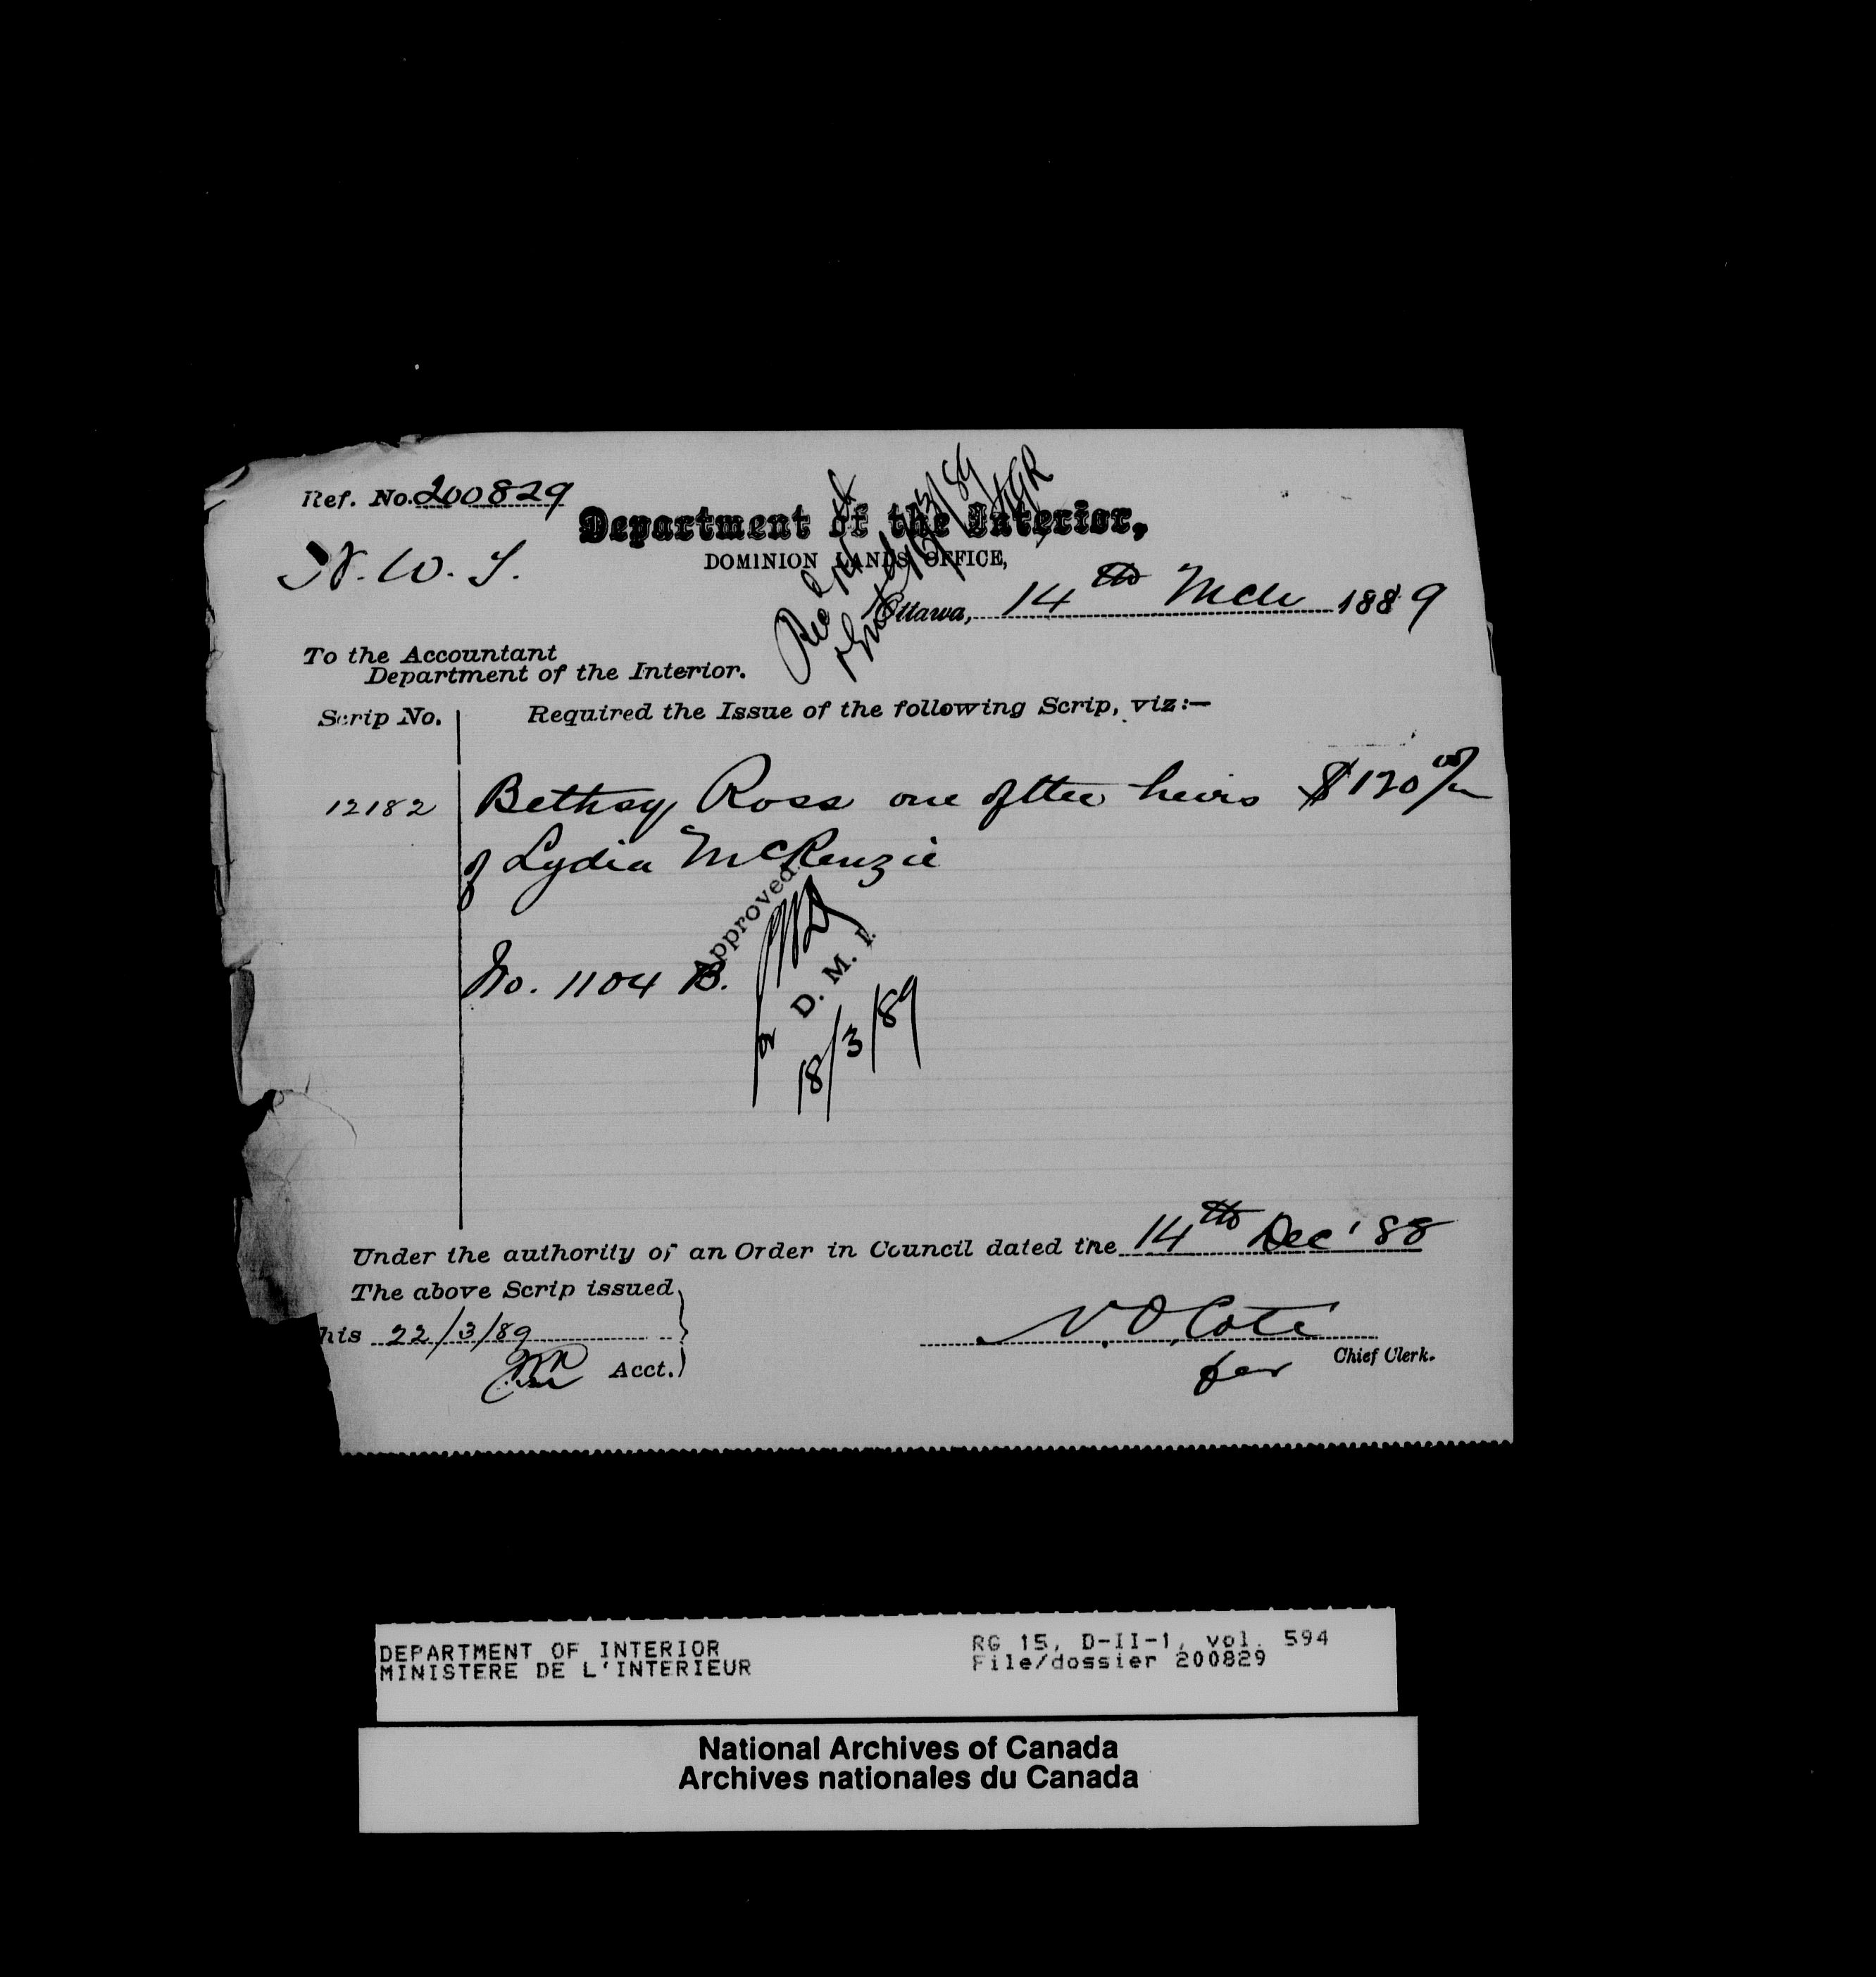 Ref. No. 200829
Department of the Interior,
DOMINION LANDS OFFICE,
N. W. T.
Ottawa, 14th Mch 1889
To the Accountant
Department of the Interior.
Scrip No.
Required the Issue of the following Scrip, viz:—
12182 Bethsy Ross one of the heirs $120 00/
of Lydia McKenzie
No. 1104 B.
Approved.
for
D. M. I.
18/3/89
Under the authority of an Order in Council dated the 14th Dec '88
The above Scrip issued
his 22/3/89
Acct.
N. O. Coté
for Chief Clerk.
DEPARTMENT OF INTERIOR
MINISTERE DE L'INTERIEUR
RG 15, D-II-1, vol. 594
File/dossier 200829
National Archives of Canada
Archives nationales du Canada